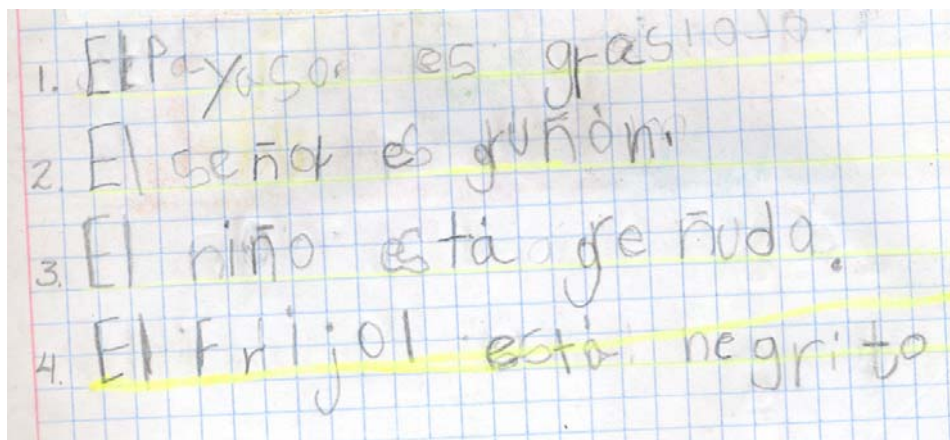 1. El Payaso es grasioso.
2. El señor es gruñón.
3. El niño está greñudo.
4. El Frijol está negrito